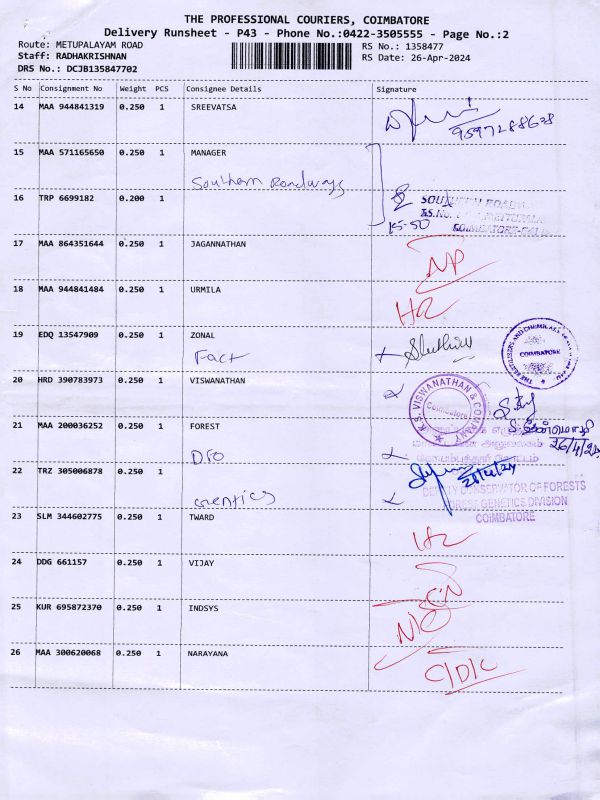 THE PROFESSIONAL COURIERS, COIMBATORE
Delivery Runsheet - P43 - Phone No.:0422-3505555 - Page No.:2
Route: METUPALAYAM ROAD
RS No.: 1358477
Staff: RADHAKRISHNAN
RS Date: 26-Apr-2024
DRS No.: DCJB135847702
S No Consignment No Weight PCS Consignee Details Signature
14 MAA 944841319 0.250 1 SREEVATSA
9597288638
15 MAA 571165650 0.250 1 MANAGER
Southern Roadways
16 TRP 6699182 0.200 1
15-50
COIMBATORE
17 MAA 864351644 0.250 1 JAGANNATHAN
NP
18 MAA 944841484 0.250 1 URMILA
19 EDQ 13547909 0.250 1 ZONAL
Fact
COIMBATORE
20 HRD 390783973 0.250 1 VISWANATHAN
K.S. VISWANATHAN & COMPANY
Coimbatore
21 MAA 200036252 0.250 1 FOREST
DFO
26/4/24
22 TRZ 305006878 0.250 1
Genetics
DEPUTY CONSERVATOR OF FORESTS
FOREST GENETICS DIVISION
COIMBATORE
23 SLM 344602775 0.250 1 TWARD
24 DDG 661157 0.250 1 VIJAY
25 KUR 695872370 0.250 1 INDSYS
26 MAA 300620068 0.250 1 NARAYANA